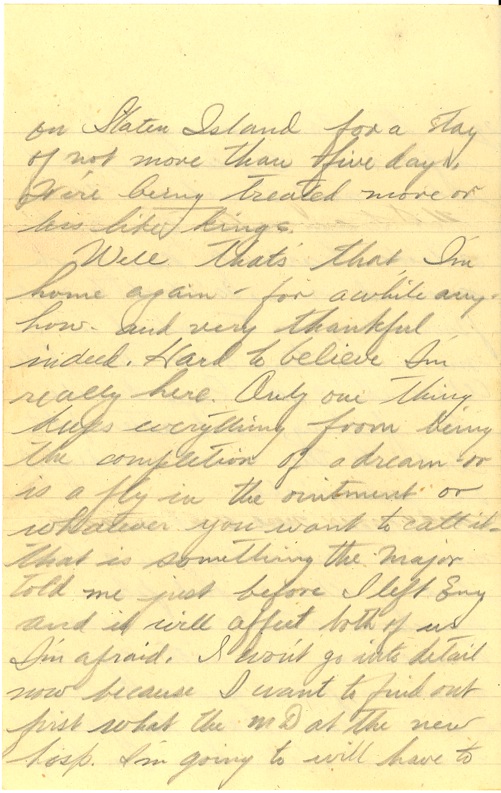 on Staten Island for a stay
of not more than five days.
We're being treated more or
less like kings.
Well thats that, I'm
home again - for awhile any-
how - and very thankful
indeed. Hard to believe I'm
really here. Only one thing
keeps everything from being
the completion of a dream - or
is a fly in the ointment or
whatever you want to call it -
that is something the major
told me just before I left Eng
and it will affect both of us
I'm afraid. I won't go into detail
now because I want to find out
first what the MD at the new
hosp. I'm going to will have to